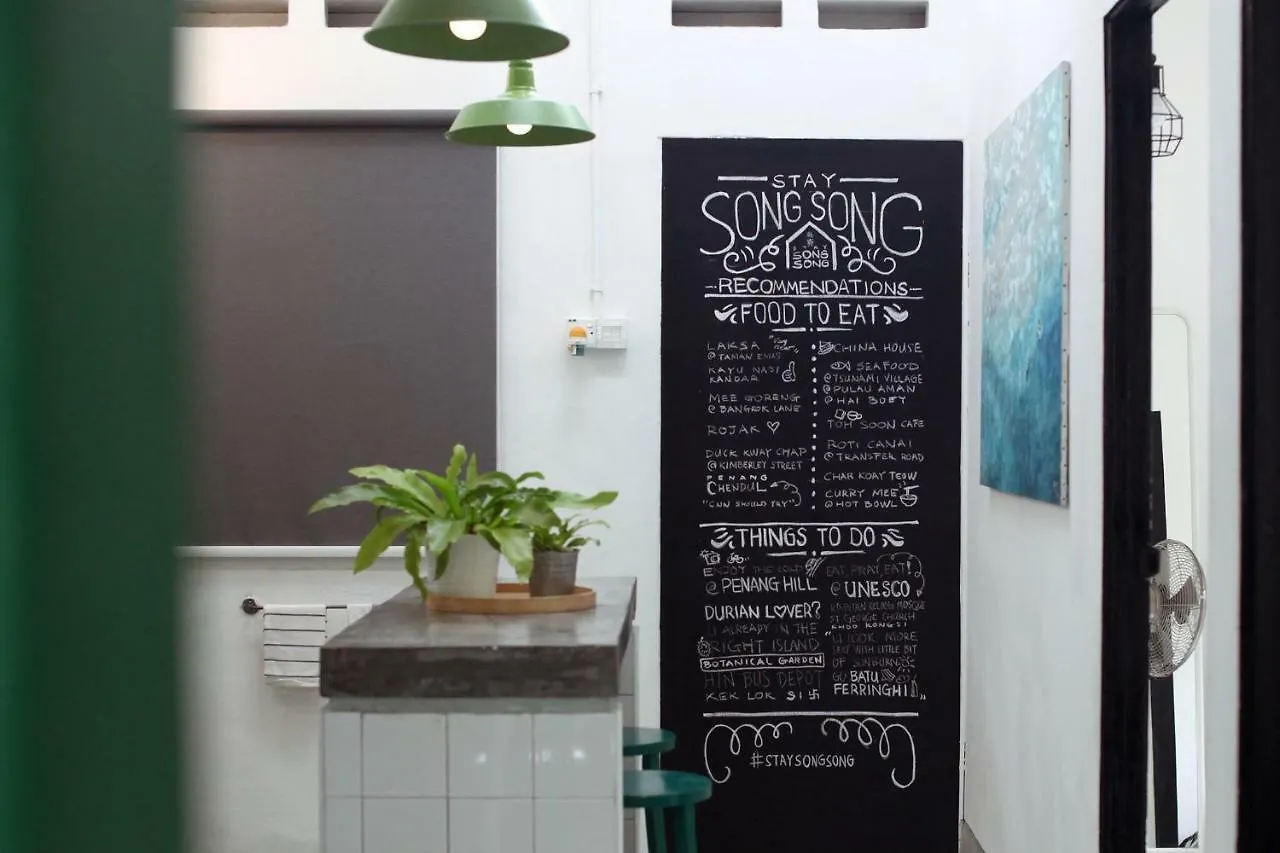 STAY
SONG SONG
STAY
SONG
SONG
RECOMMENDATIONS
FOOD TO EAT
LAKSA
@ TAMAN EMAS
KAYU NASI
KANDAR
MEE GORENG
@ BANGKOK LANE
ROJAK
DUCK KWAY CHAP
@ KIMBERLEY STREET
PENANG
CHENDUL
"CNN SHOULD TRY"
CHINA HOUSE
SEAFOOD
@ TSUNAMI VILLAGE
@ PULAU AMAN
@ HAI BOEY
TOH SOON CAFE
ROTI CANAI
@ TRANSFER ROAD
CHAR KOAY TEOW
CURRY MEE
@ HOT BOWL
THINGS TO DO
ENJOY THE COLD
@ PENANG HILL
DURIAN LOVER?
U ALREADY IN THE
RIGHT ISLAND
BOTANICAL GARDEN
HIN BUS DEPOT
KEK LOK SI 卐
EAT, PRAY, EAT!
@ UNESCO
KAPITAN KELING MOSQUE
ST GEORGE CHURCH
KHOO KONGSI
"U LOOK MORE
SEXY WITH LITTLE BIT
OF SUNBURN
GO BATU
FERRINGHI"
#STAYSONGSONG